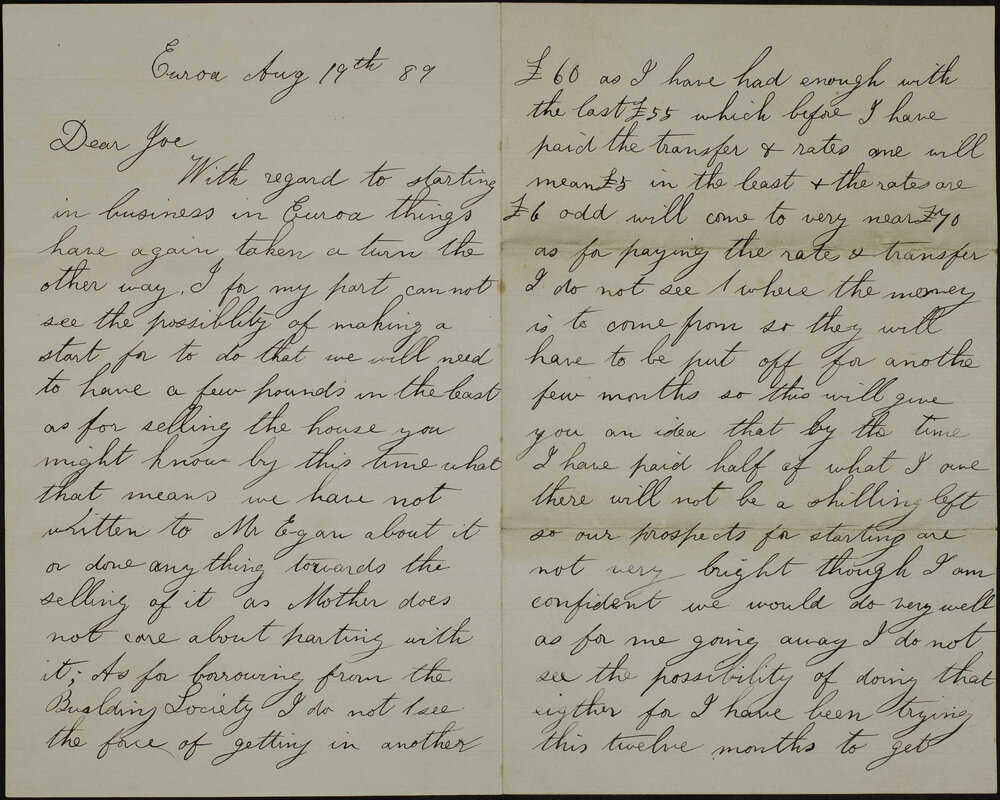 Euroa Aug 19th 89
Dear Joe
With regard to starting
in business in Euroa things
have again taken a turn the
other way. I for my part cannot
see the possiblity of making a
start for to do that we will need
to have a few pounds in the least
as for selling the house you
might know by this time what
that means we have not
written to Mr Egan about it
or done anything towards the
selling of it as Mother does
not care about parting with
it; As for borrowing from the
Building Society I do not see
the force of getting in another
£60 as I have had enough with
the last £55 which before I have
paid the transfer & rates one will
mean £5 in the least & the rates are
£6 odd will come to very near £70
as for paying the rate & transfer
I do not see where the money
is to come from so they will
have to be put off for anothe
few months so this will give
you an idea that by the time
I have paid half of what I owe
there will not be a shilling left
so our prospects for starting are
not very bright though I am
confident we would do very well
as for me going away I do not
see the possibility of doing that
eigther for I have been trying
this twelve months to get